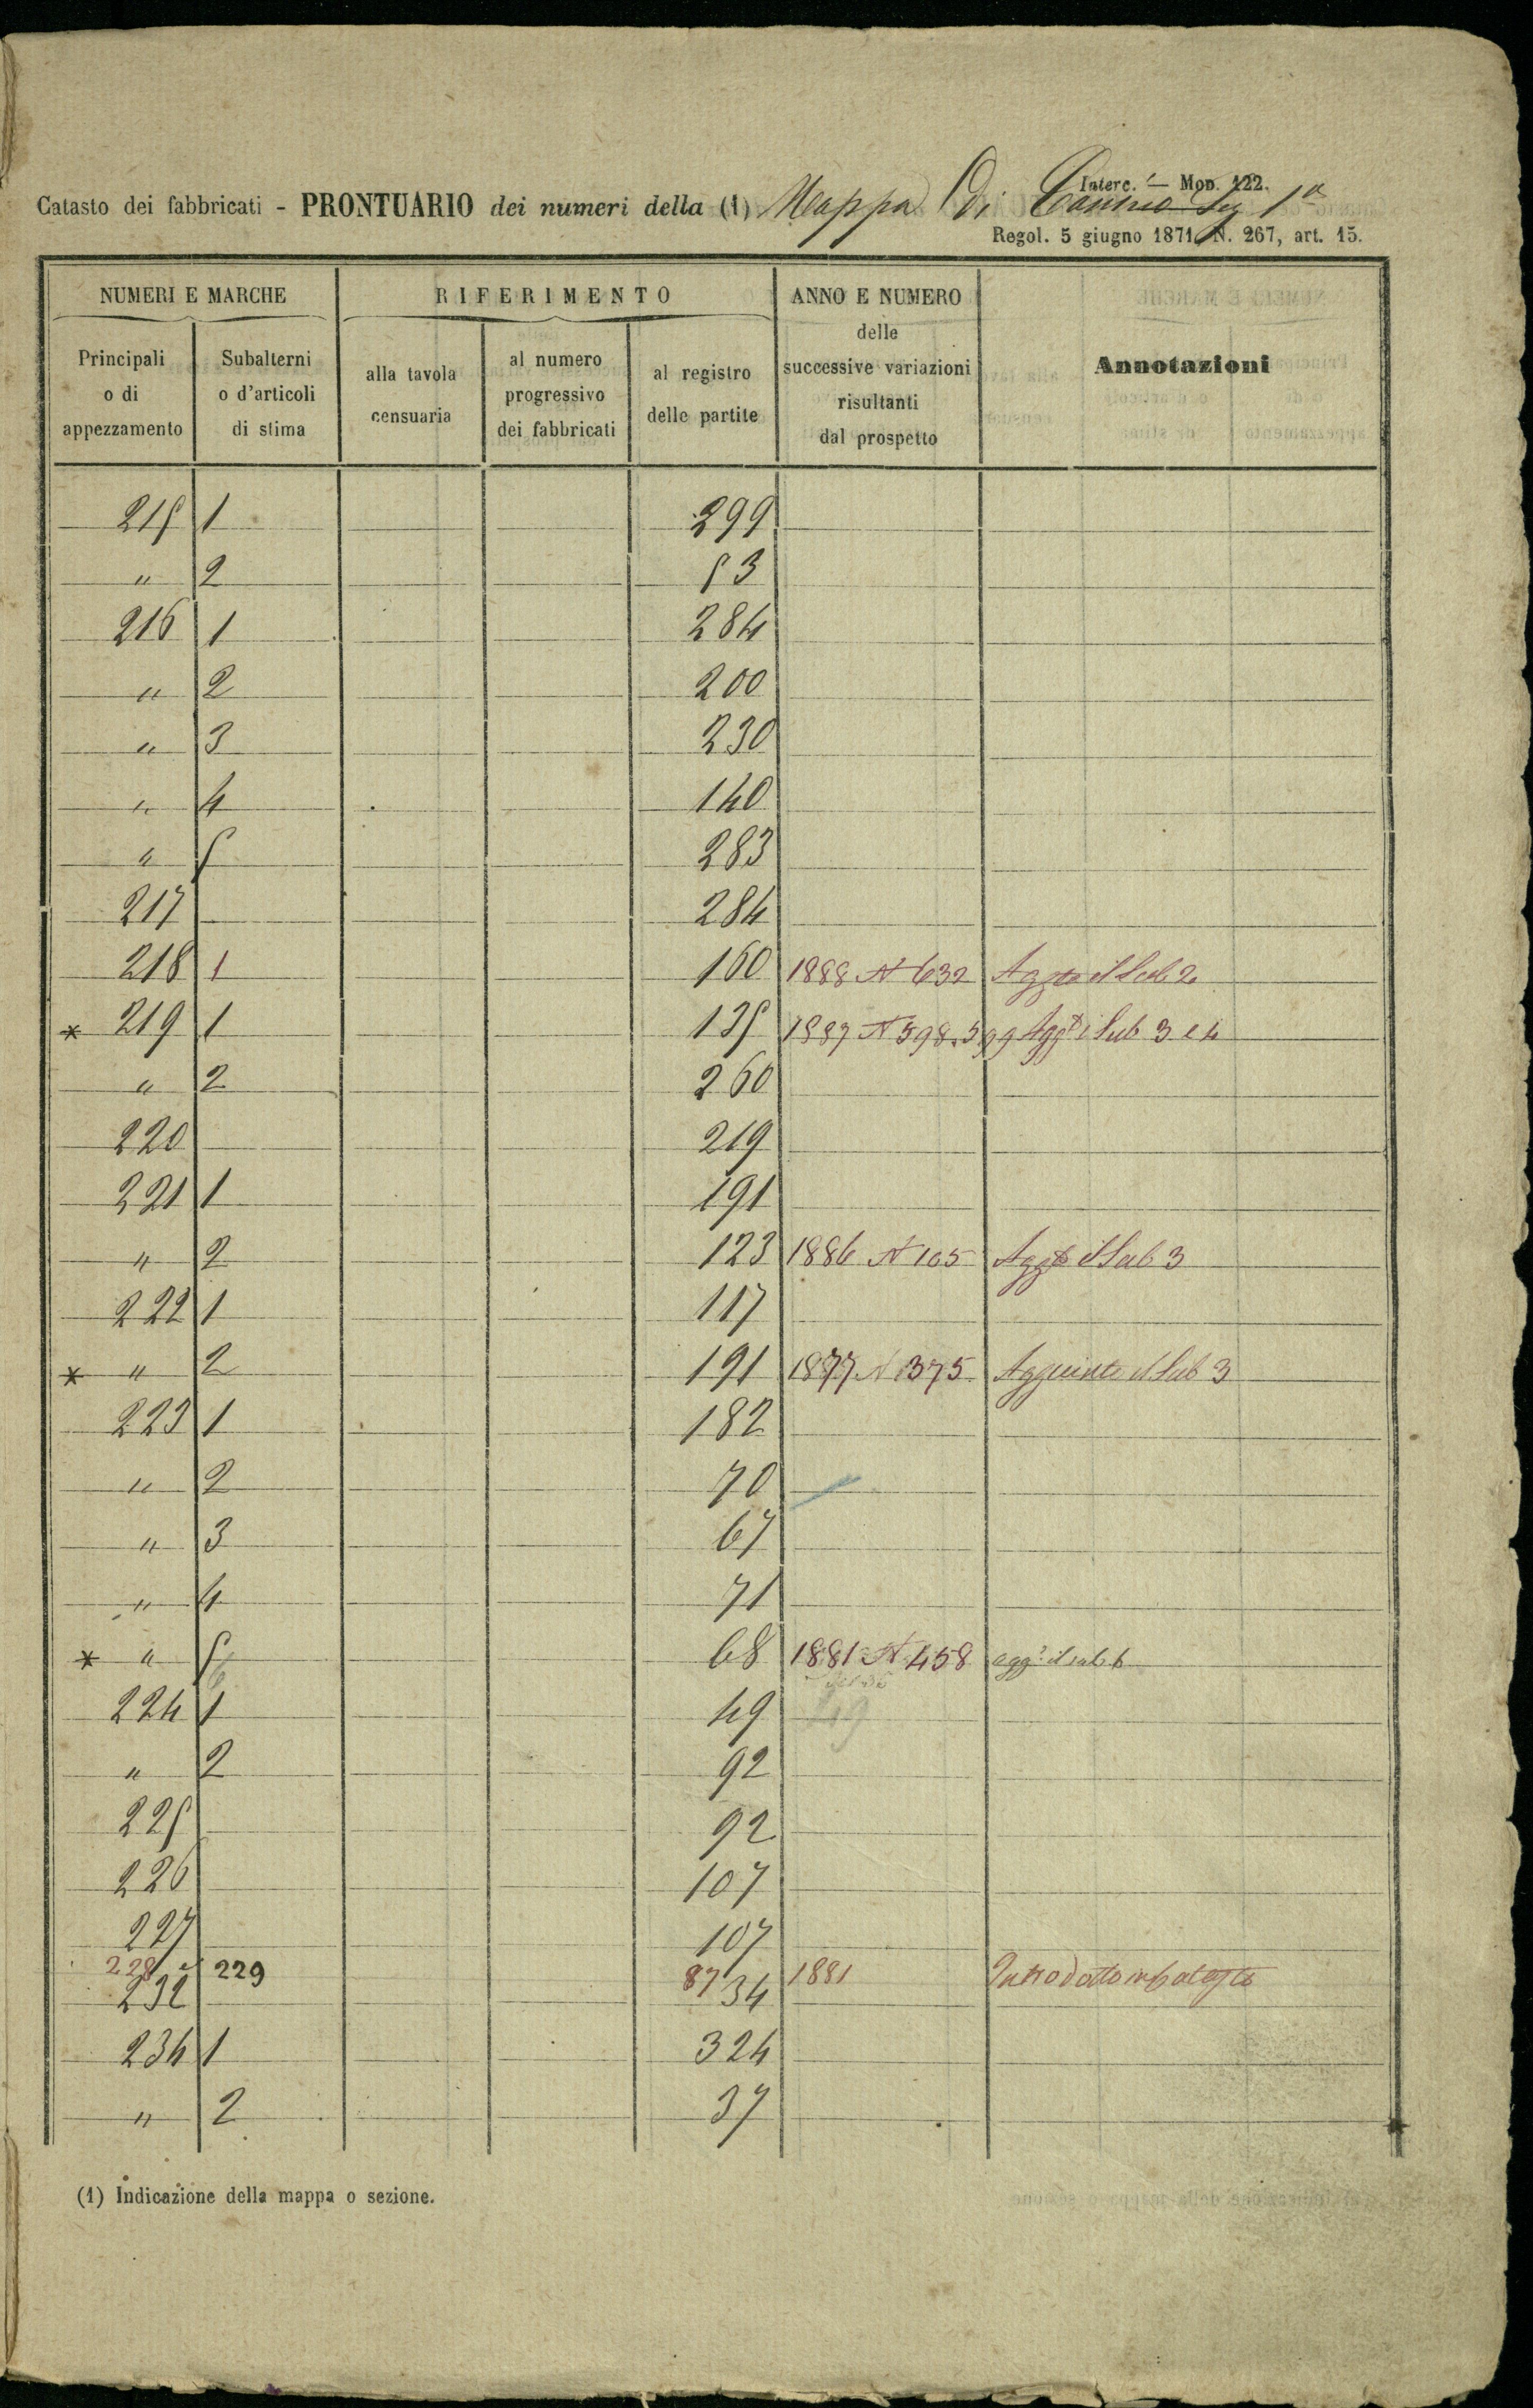 Interc. — Mod. 122.
Catasto dei fabbricati - PRONTUARIO dei numeri della (1) Mappa di Canino Sez 1a
Regol. 5 giugno 1871, N. 267, art. 15.
NUMERI E MARCHE RIFERIMENTO ANNO E NUMERO delle successive variazioni risultanti dal prospetto Annotazioni
Principali o di appezzamento Subalterni o d'articoli di stima alla tavola censuaria al numero progressivo dei fabbricati al registro delle partite
215 1 299
" 2 53
216 1 284
" 2 200
" 3 230
" 4 140
" 5 283
217 284
218 1 160 1888 N 632 Aggto il Sub 2
* 219 1 135 1887 N 598.599 Aggti i Sub 3 e 4
" 2 260
220 219
221 1 191
" 2 123 1886 N 105 Aggto il Sub 3
222 1 117
* " 2 191 1877 N 375 Aggiunto il Sub 3
223 1 182
" 2 70
" 3 67
" 4 71
* " 5 68 1881 N 458 aggo il sub 6
6
224 1 49 49
" 2 92
225 92
226 107
227 107
228 e 229 87 1881 Introdotto in Catasto
232 34
234 1 324
" 2 37
(1) Indicazione della mappa o sezione.